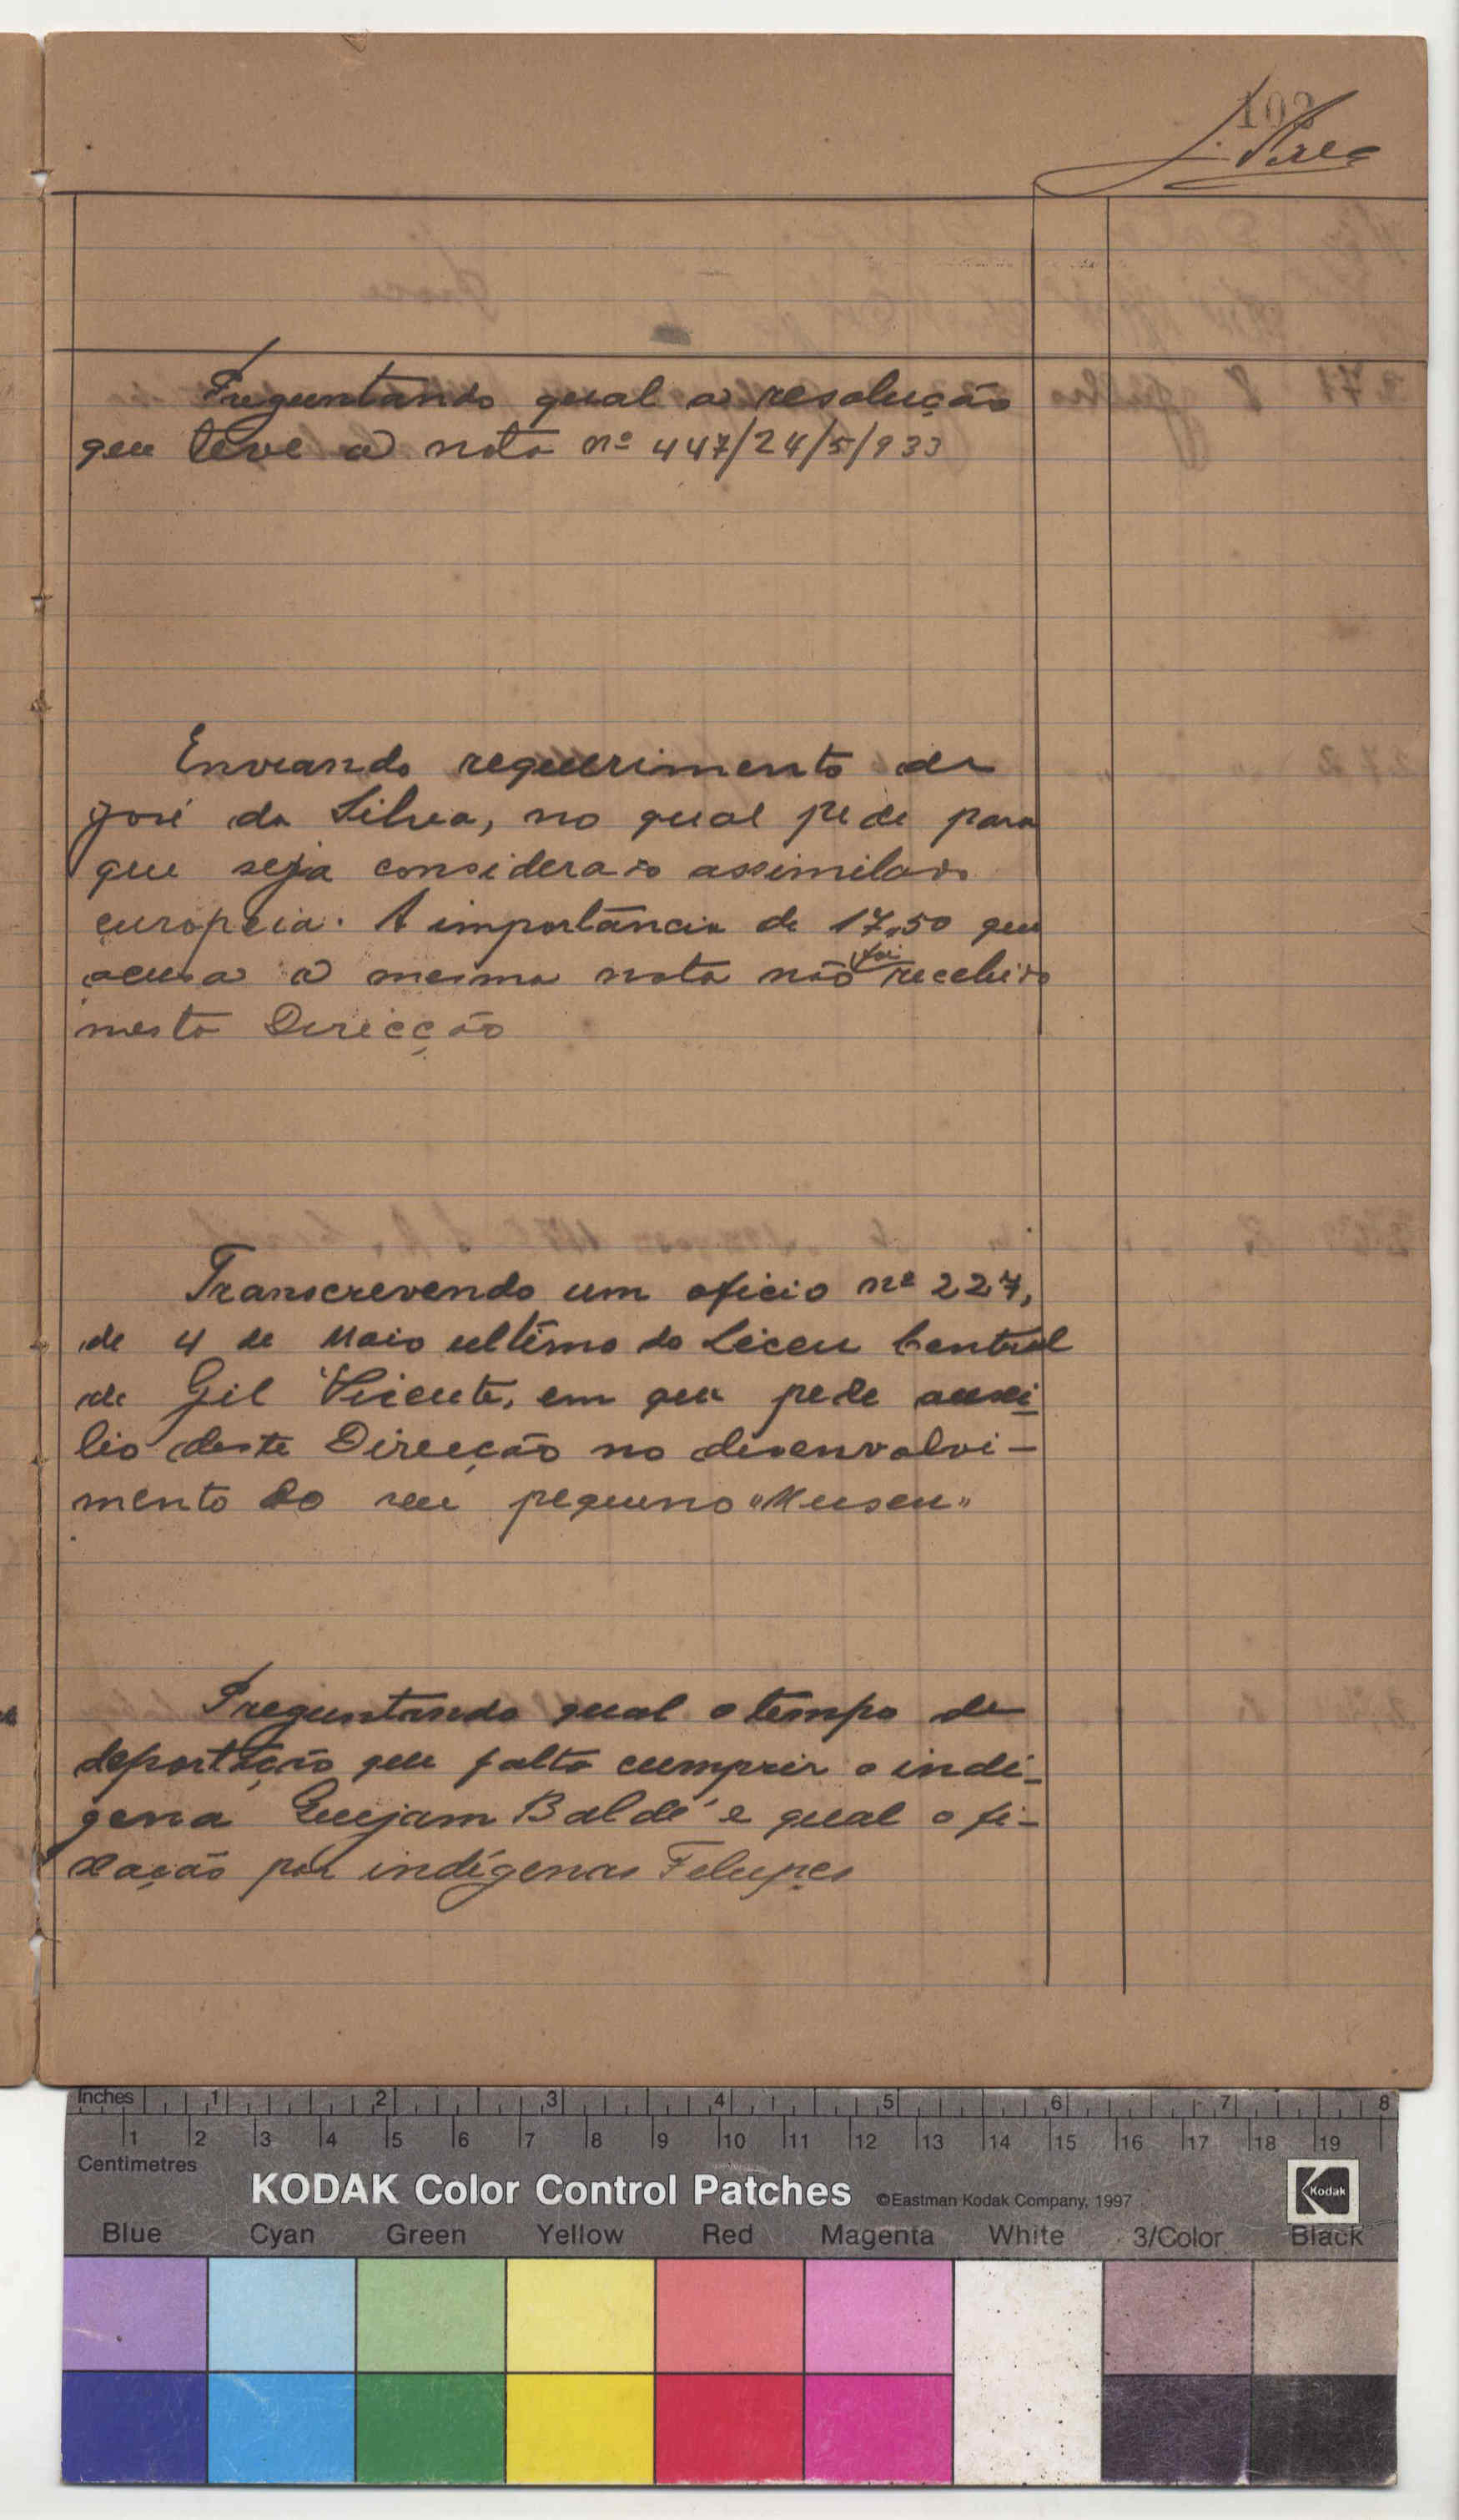 103
Preguntando qual a resolução
que teve a nota nº 447/24/5/933
Enviando requerimento de
José da Silva, no qual pede para
que seja considerado assimilado
europeia. A importância de 17,50 que
acusa a mesma nota não foi recebida
nesta Direcção
Transcrevendo um oficio nº 227,
de 4 de Maio ultimo do Liceu Central
de Gil Vicente, em que pede auxi
lio deste Direcção no desenvolvi-
mento do seu pequeno "Museu"
Preguntando qual o tempo de
deportação que falta cumprir o indi-
gena Guejam Baldé e qual o fi-
xação por indígenas Felupes
Inches 1 2 3 4 5 6 7 8
1 2 3 4 5 6 7 8 9 10 11 12 13 14 15 16 17 18 19
Centimetres
KODAK Color Control Patches ©Eastman Kodak Company, 1997 Kodak
Blue Cyan Green Yellow Red Magenta White 3/Color Black